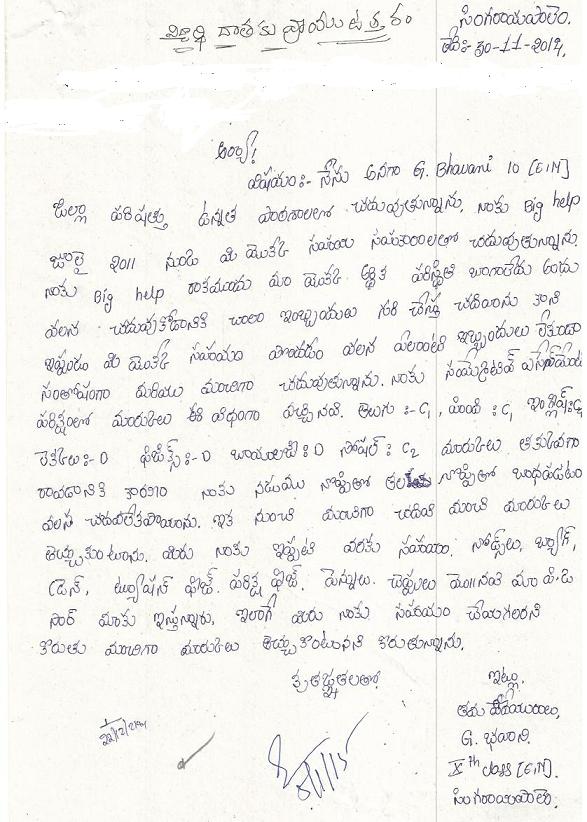 విద్యార్థి దాతకు వ్రాయు ఉత్తరం
సింగరాయపాలెం.
తేది:- 30-11-2014.
అర్యా!
విషయం:- నేను అనగా G. Bhavani 10 [E/M]
జిల్లా పరిషత్తు ఉన్నత పాఠశాలలో చదువుతున్నాను. నాకు Big help
జూలై 2011 నుండి మీ యొక్క సహాయ సహకారాలతో చదువుతున్నాను.
నాకు Big help రాకముందు మా యొక్క ఆర్థిక పరిస్థితి బాగాలేదు అందు
వలన చదువుకోడానికి చాలా ఇబ్బందులు చదివాను కాని
ఇప్పుడు మీ యొక్క సహాయం పొందడం వలన ఎలాంటి ఇబ్బందులు లేకుండా
సంతోషంగా మరియు మంచిగా చదువుతున్నాను. నాకు
పరీక్షలలో మార్కులు ఈ విధంగా వచ్చినవి. తెలుగు :- C1, హిందీ : C1 ఇంగ్లీష్:C2
లెక్కలు :- D ఫిజిక్స్ :- D బాయాలజి :- D సోషల్ : C2 మార్కులు తక్కువగా
రావడానికి కారణం నాకు నడుము నొప్పితో తల నొప్పితో బాధపడటం
వలన చదవలేకపోయాను. ఇక నుంచి మంచిగా చదివి మంచి మార్కులు
తెచ్చుకుంటాను. మీరు నాకు ఇప్పటి వరకు సహాయం. నోట్స్‌లు, బ్యాగ్,
డ్రెస్, ట్యూషన్ ఫీజ్. పరీక్ష ఫీజ్. పెన్నులు. చెప్పులు మొ||నవి మా పి.డి
సార్ మాకు ఇస్తున్నారు, ఇలాగే మీరు నాకు సహాయం చేయగలరని
కోరుతు మంచిగా మార్కులు తెచ్చుకొంటానని కోరుతున్నాను.
కృతజ్ఞతలతో
ఇట్లు
తమ విధేయురాలు,
G. భవాని.
X th class [E/M].
సింగరాయపాలెం.